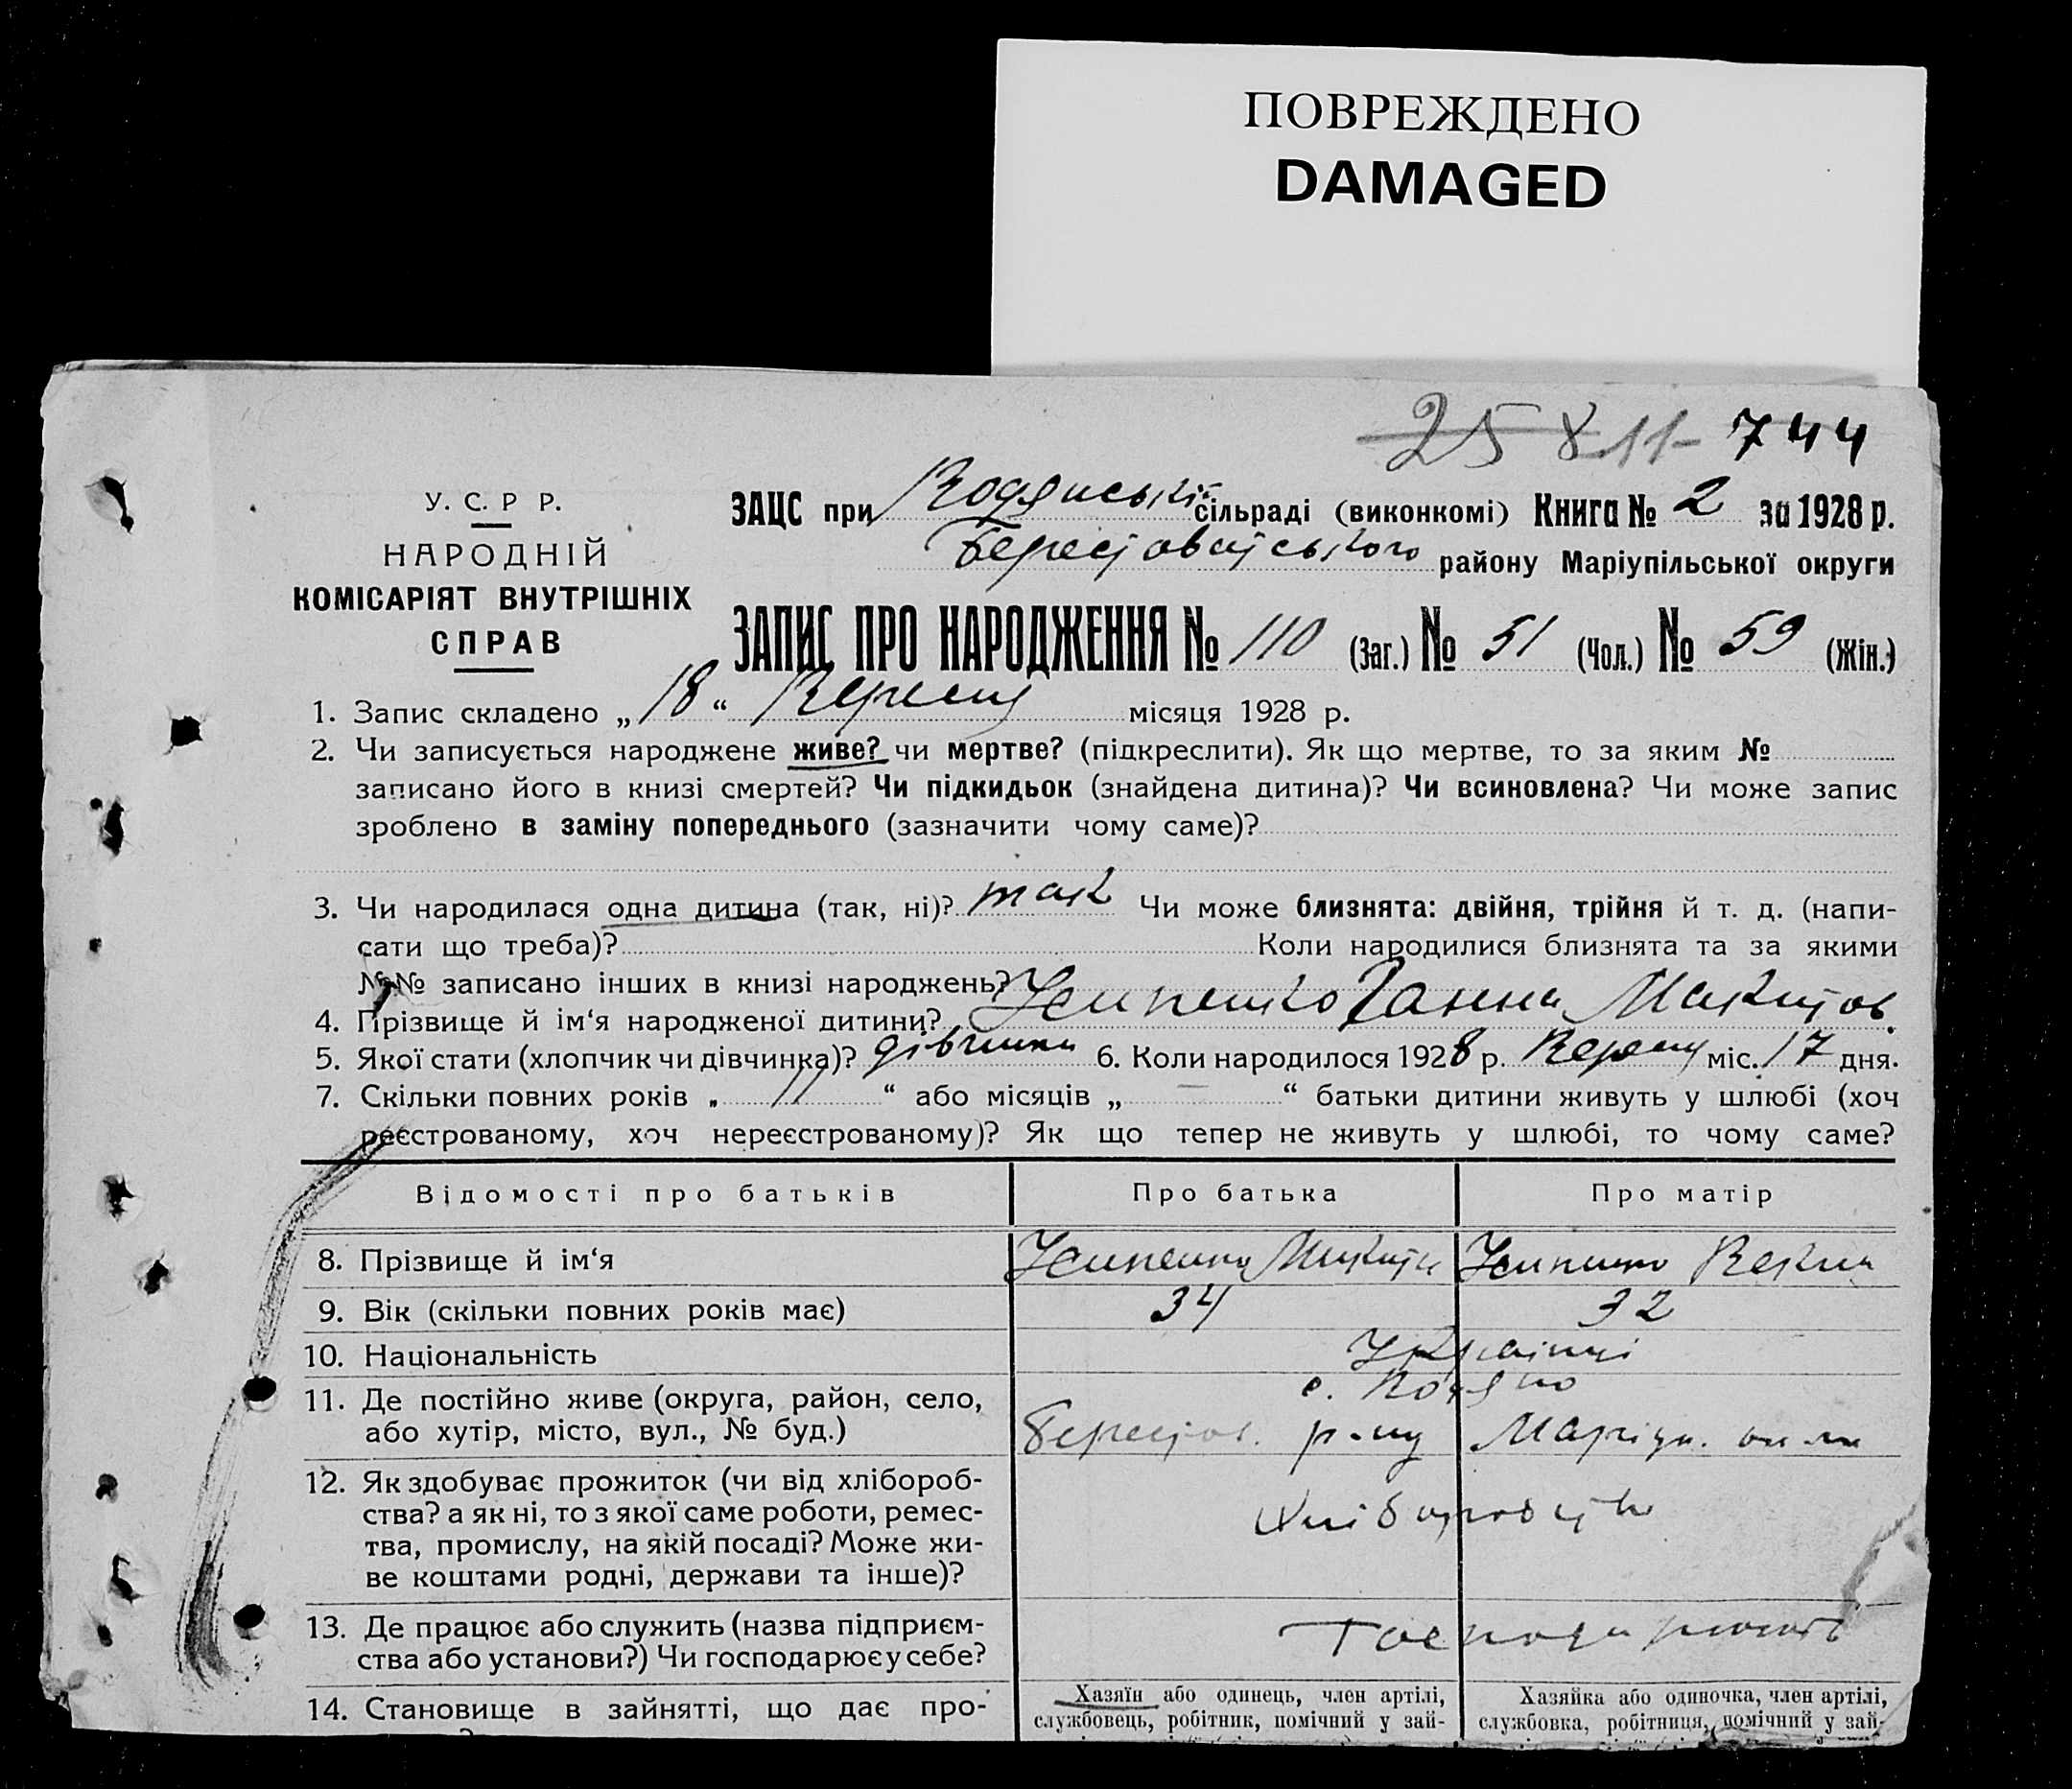 ПОВРЕЖДЕНО
DAMAGED
25 811 744
У. С. Р Р.
НАРОДНІЙ
КОМІСАРІЯТ ВНУТРІШНІХ
СПРАВ
ЗАЦС при сільраді (виконкомі) Книга № 2 за 1928 р.
району Маріупільської округи
ЗАПИС ПРО НАРОДЖЕННЯ № 110 (Заг.) № 51 (Чол.) № 59 (Жін.)
1. Запис складено „ 18 “ місяця 1928 р.
2. Чи записується народжене живе? чи мертве? (підкреслити). Як що мертве, то за яким №
записано його в книзі смертей? Чи підкидьок (знайдена дитина)? Чи всиновлена? Чи може запис
зроблено в заміну попереднього (зазначити чому саме)?
3. Чи народилася одна дитина (так, ні)? так Чи може близнята: двійня, трійня й т. д. (напи-
сати що треба)? Коли народилися близнята та за якими
№№ записано інших в книзі народжень?
4. Прізвище й ім‘я народженої дитини? Ганна
5. Якої стати (хлопчик чи дівчинка)? дівчинка 6. Коли народилося 1928 р. міс. 17 дня.
7. Скільки повних років „ 11 “ або місяців „ — “ батьки дитини живуть у шлюбі (хоч
реєстрованому, хоч нереєстрованому)? Як що тепер не живуть у шлюбі, то чому саме?
Відомості про батьків Про батька Про матір
8. Прізвище й ім‘я Микита
9. Вік (скільки повних років має) 34 32
10. Національність Українці
11. Де постійно живе (округа, район, село,
або хутір, місто, вул., № буд.)
12. Як здобуває прожиток (чи від хлібороб-
ства? а як ні, то з якої саме роботи, ремес-
тва, промислу, на якій посаді? Може жи-
ве коштами родні, держави та інше)?
13. Де працює або служить (назва підприєм-
ства або установи?) Чи господарює у себе?
14. Становище в зайнятті, що дає про-
Хазяїн або одинець, член артілі,
службовець, робітник, помічний у зай-
Хазяйка або одиночка, член артілі,
службовка, робітниця, помічний у зай-